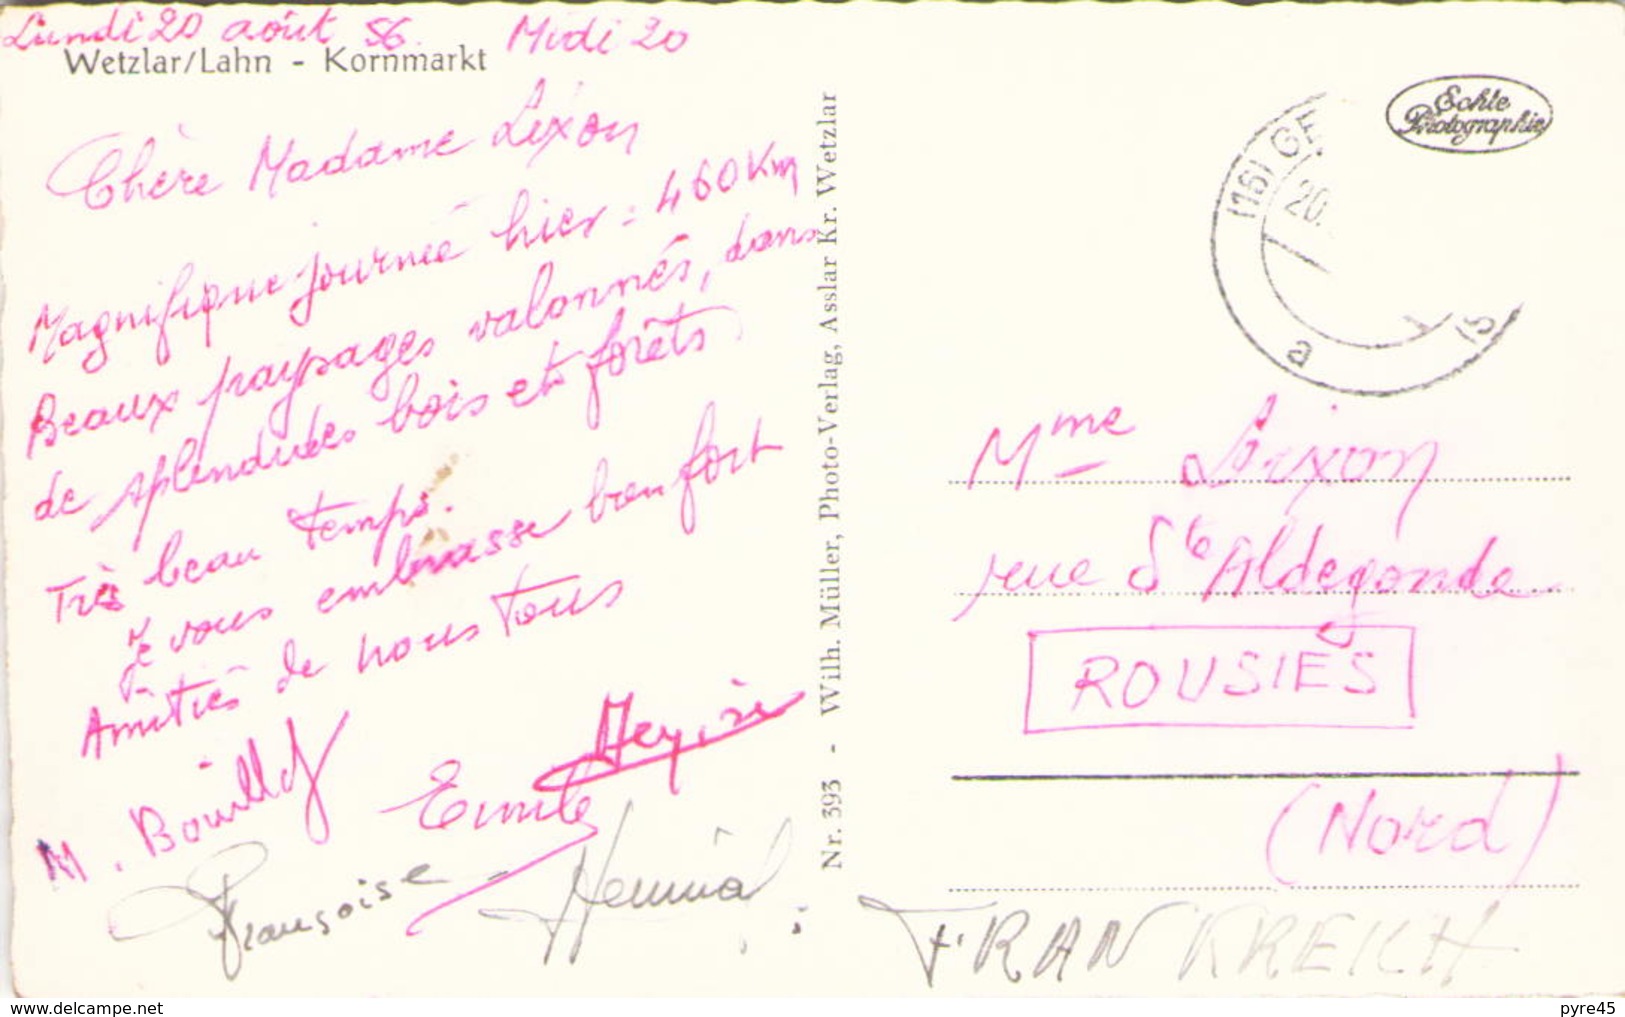 Lundi 20 août 56. Midi 20
Wetzlar/Lahn - Kornmarkt
Chère Madame Lixon
Magnifique journée hier = 460 Km
Beaux paysages valonnés, dans
de splendides bois et forêts.
Très beau temps.
Je vous embrasse bien fort
Amitiés de nous tous
M. Bouillol
Emile
Françoise
Nr. 393 - Wilh. Müller, Photo-Verlag, Asslar Kr. Wetzlar
Echte
Photographie
(16) GE
20.
a
Mme Lixon
rue Ste Aldegonde
ROUSIES
(Nord)
FRANKREICH
pyre45